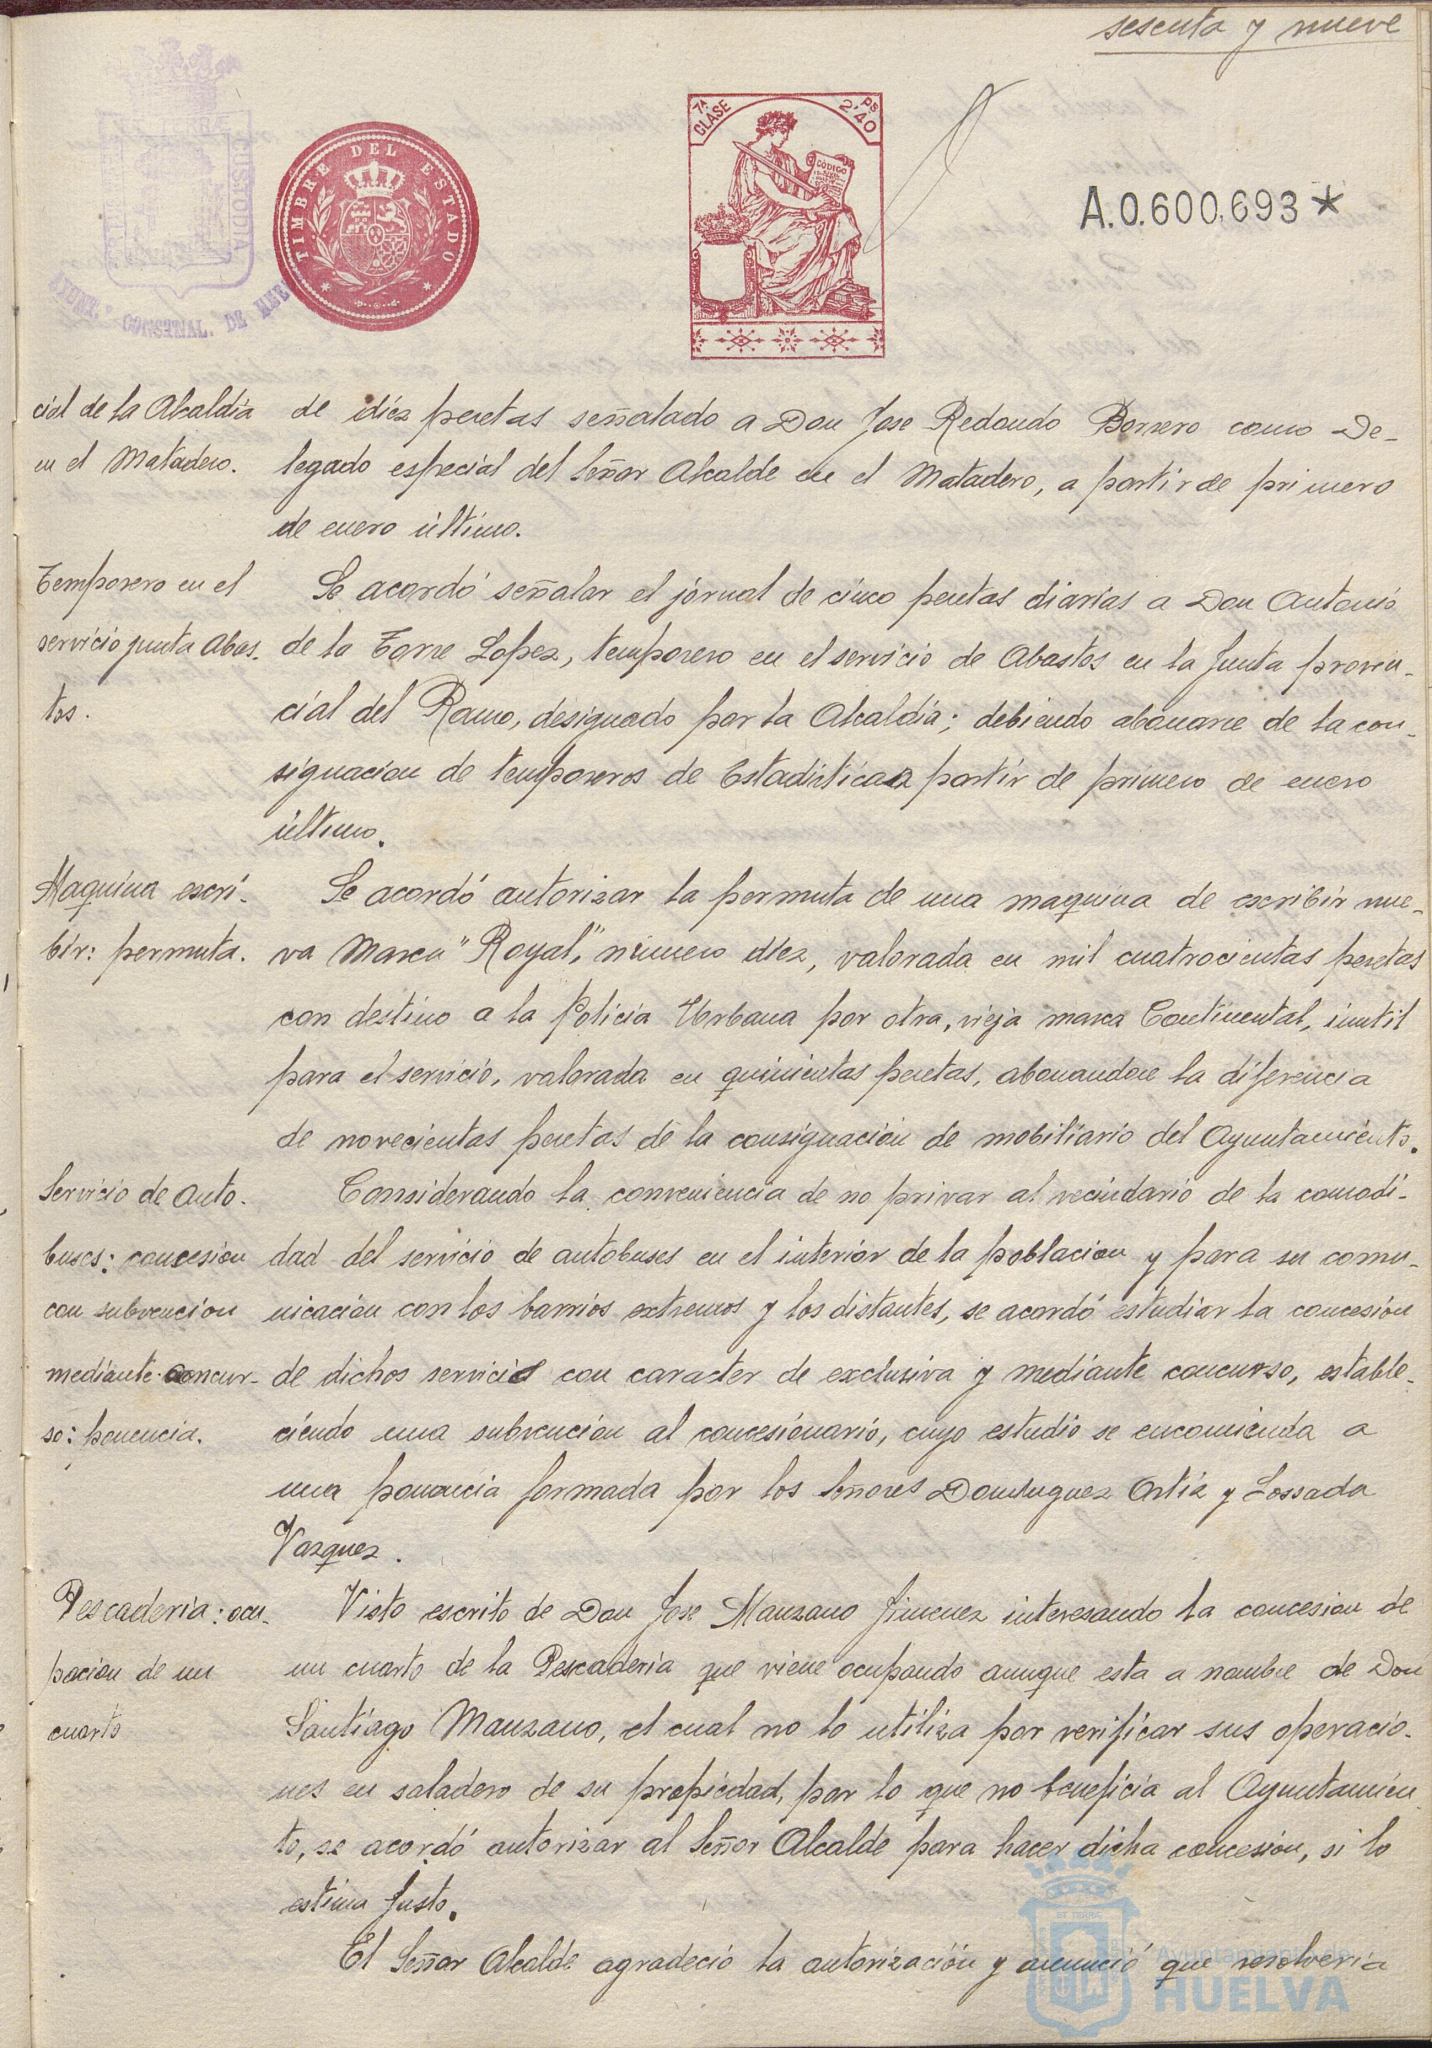 sesenta y nueve
TIMBRE DEL ESTADO
CUSTODIA
7ª CLASE
2'40 Ps
CODIGO
A.0.600,693*
cial de la Alcaldia
en el Matadero.
de diez pesetas señalado a Don Jose Redondo Borrero como De-
legado especial del Señor Alcalde en el Matadero, a partir de primero
de enero último.
Temporero en el
servicio junta Abas-
tos.
Se acordó señalar el jornal de cinco pesetas diarias a Don Antonio
de la Torre Lopez, temporero en el servicio de Abastos en la Junta provin-
cial del Ramo, designado por la Alcaldia; debiendo abonarse de la con-
signacion de temporeros de Estadistica a partir de primero de enero
último.
Maquina escri-
bir: permuta.
Se acordó autorizar la permuta de una maquina de escribir nue-
va Marca "Royal", número diez, valorada en mil cuatrocientas pesetas
con destino a la Policia Urbana por otra, vieja marca Continental, inutil
para el servicio, valorada en quinientas pesetas, abonandose la diferencia
de novecientas pesetas de la consignación de mobiliario del Ayuntamiento.
Servicio de auto-
buses: concesion
con subvencion
mediante concur-
so: ponencia.
Considerando la conveniencia de no privar al vecindario de la comodi-
dad del servicio de autobuses en el interior de la poblacion y para su comu-
nicacion con los barrios extremos y los distantes, se acordó estudiar la concesión
de dichos servicios con caracter de exclusiva y mediante concurso, estable-
ciendo una subvencion al concesionario, cuyo estudio se encomienda a
una ponencia formada por los Señores Dominguez Ortiz y Lossada
Vazquez.
Pescaderia: ocu-
pacion de un
cuarto
Visto escrito de Don Jose Manzano Jimenez interesando la concesion de
un cuarto de la Pescaderia que viene ocupando aunque esta a nombre de Don
Santiago Manzano, el cual no lo utiliza por verificar sus operacio-
nes en saladero de su propiedad, por lo que no beneficia al Ayuntamien-
to, se acordó autorizar al Señor Alcalde para hacer dicha concesión, si lo
estima justo.
El Señor Alcalde agradeció la autorización y anunció que resolveria
Ayuntamiento de
HUELVA